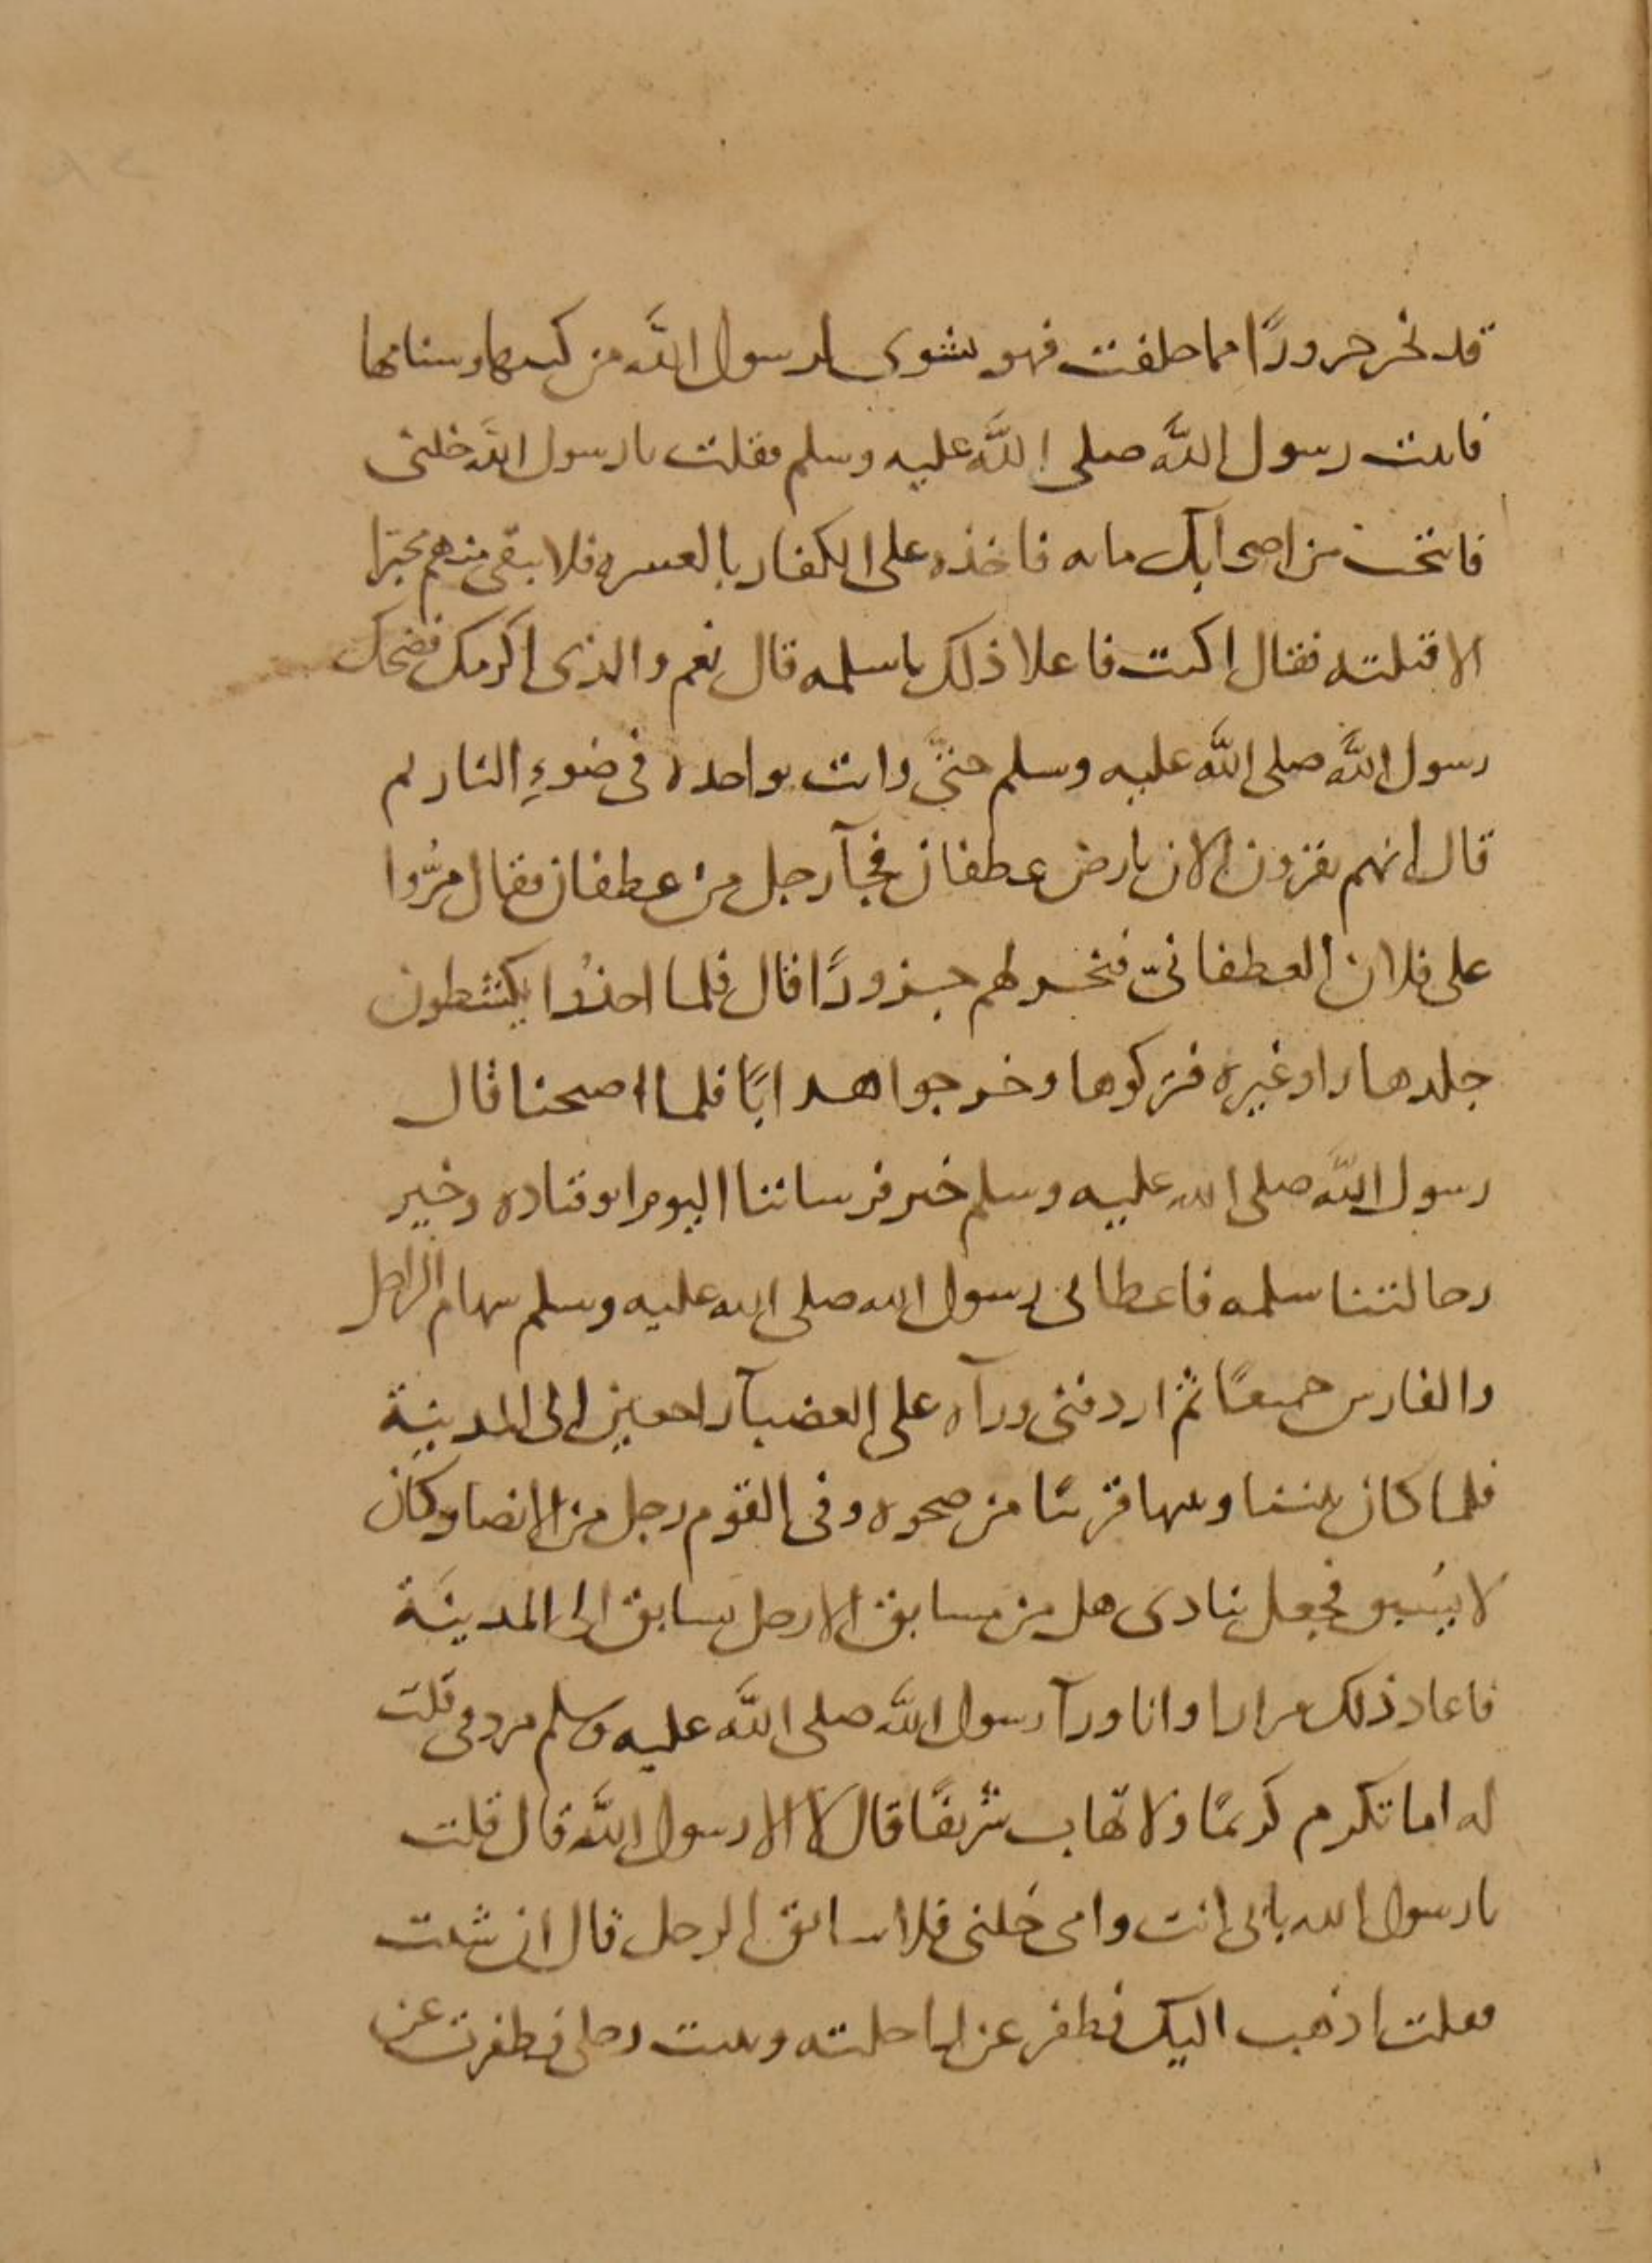 قد نحر جزورًا مما خلفت فهو يشوى لرسول الله من كبدها وسنامها
فاتيت رسول الله صلى الله عليه وسلم فقلت يا رسول الله خلنى
فانتخب من اصحابك مايه فاخذه على الكفار بالعسره فلا يبقى منهم مخبرا
الا قتلته فقال اكنت فاعلا ذلك يا سلمه قال نعم والذى اكرمك فضحك
رسول الله صلى الله عليه وسلم حتىّ رايت نواجده فى ضوءِ النار ثم
قال انهم يقرون الان بارض غطفان فجآ رجل من غطفان فقال مرُّوا
على فلان الغطفانىّ فنحر لهم جزورًا قال فلما اخذُوا يكشطون
جلدها راو غبره فتركوها وخرجوا هرابًا فلما اصبحنا قال
رسول الله صلى الله عليه وسلم خير فرساننا اليوم ابو قتاده وخير
رجالتنا سلمه فاعطانى رسول الله صلى الله عليه وسلم سهام الراجل
والفارس جميعًا ثم اردفنى ورآه على العضبآ راجعين الى المدينة
فلما كان بيننا وبينها قريبًا من ضحوه وفى القوم رجل من الانصار وكان
لا يُسبق فجعل ينادى هل من مسابق الا رجل يسابق الى المدينة
فاعاد ذلك مرارا وانا ورآ رسول الله صلى الله عليه وسلم مردفى قلت
له اما تكرم كريمًا ولا تهاب شريفًا قال لا الا رسول الله قال قلت
يا رسول الله بابى انت وامى خلنى فلاسابق الرجل قال ان شئت
فقلت اذهب اليك فطفر عن راحلته وثنيت رجلى فطفرت عن